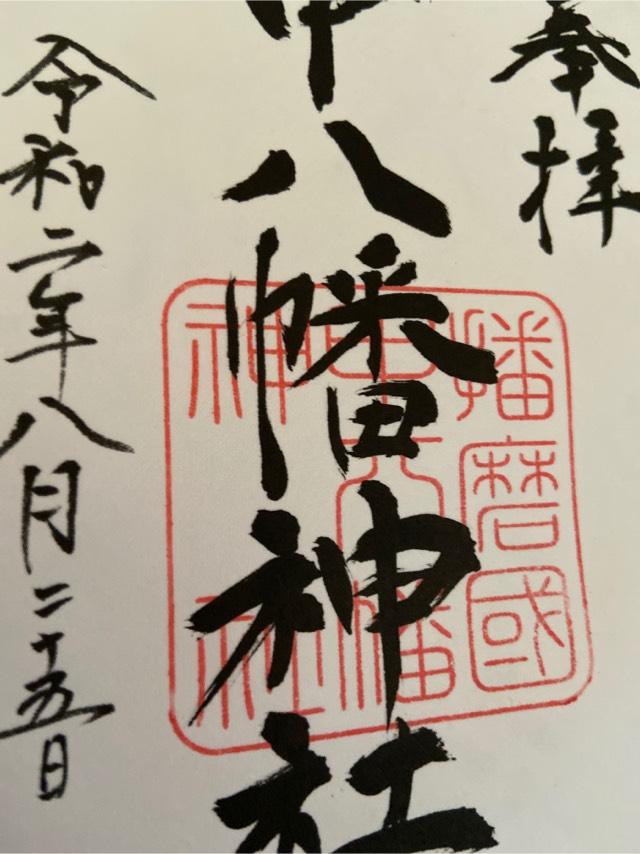 奉拝
甲八幡神社
令和二年八月二十五日
播磨國
甲八幡
神社